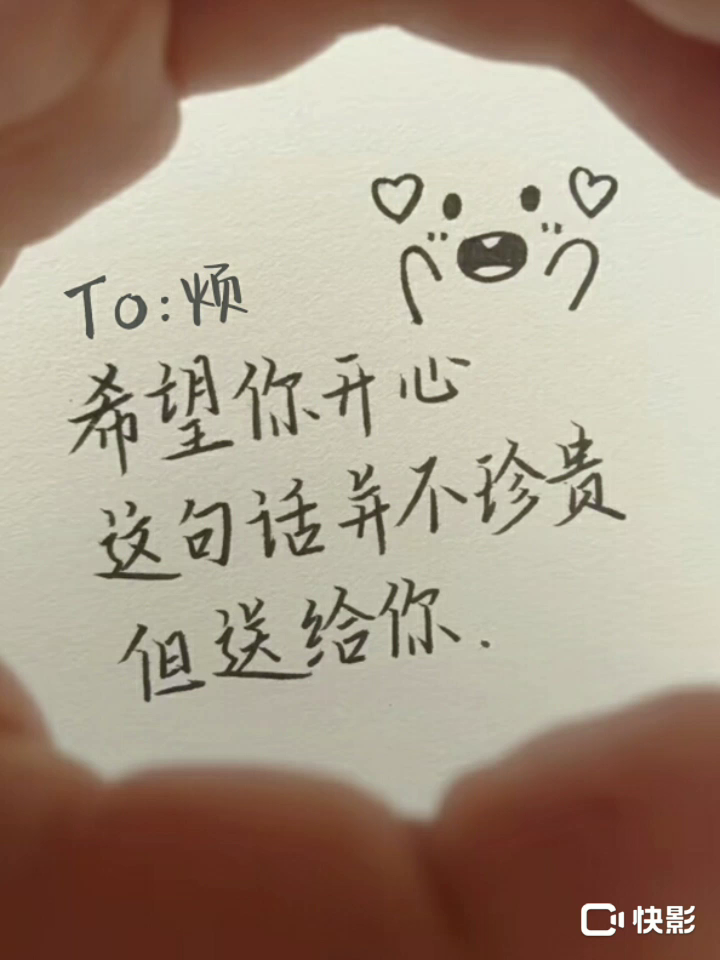 To:烦
希望你开心
这句话并不珍贵
但送给你.
快影